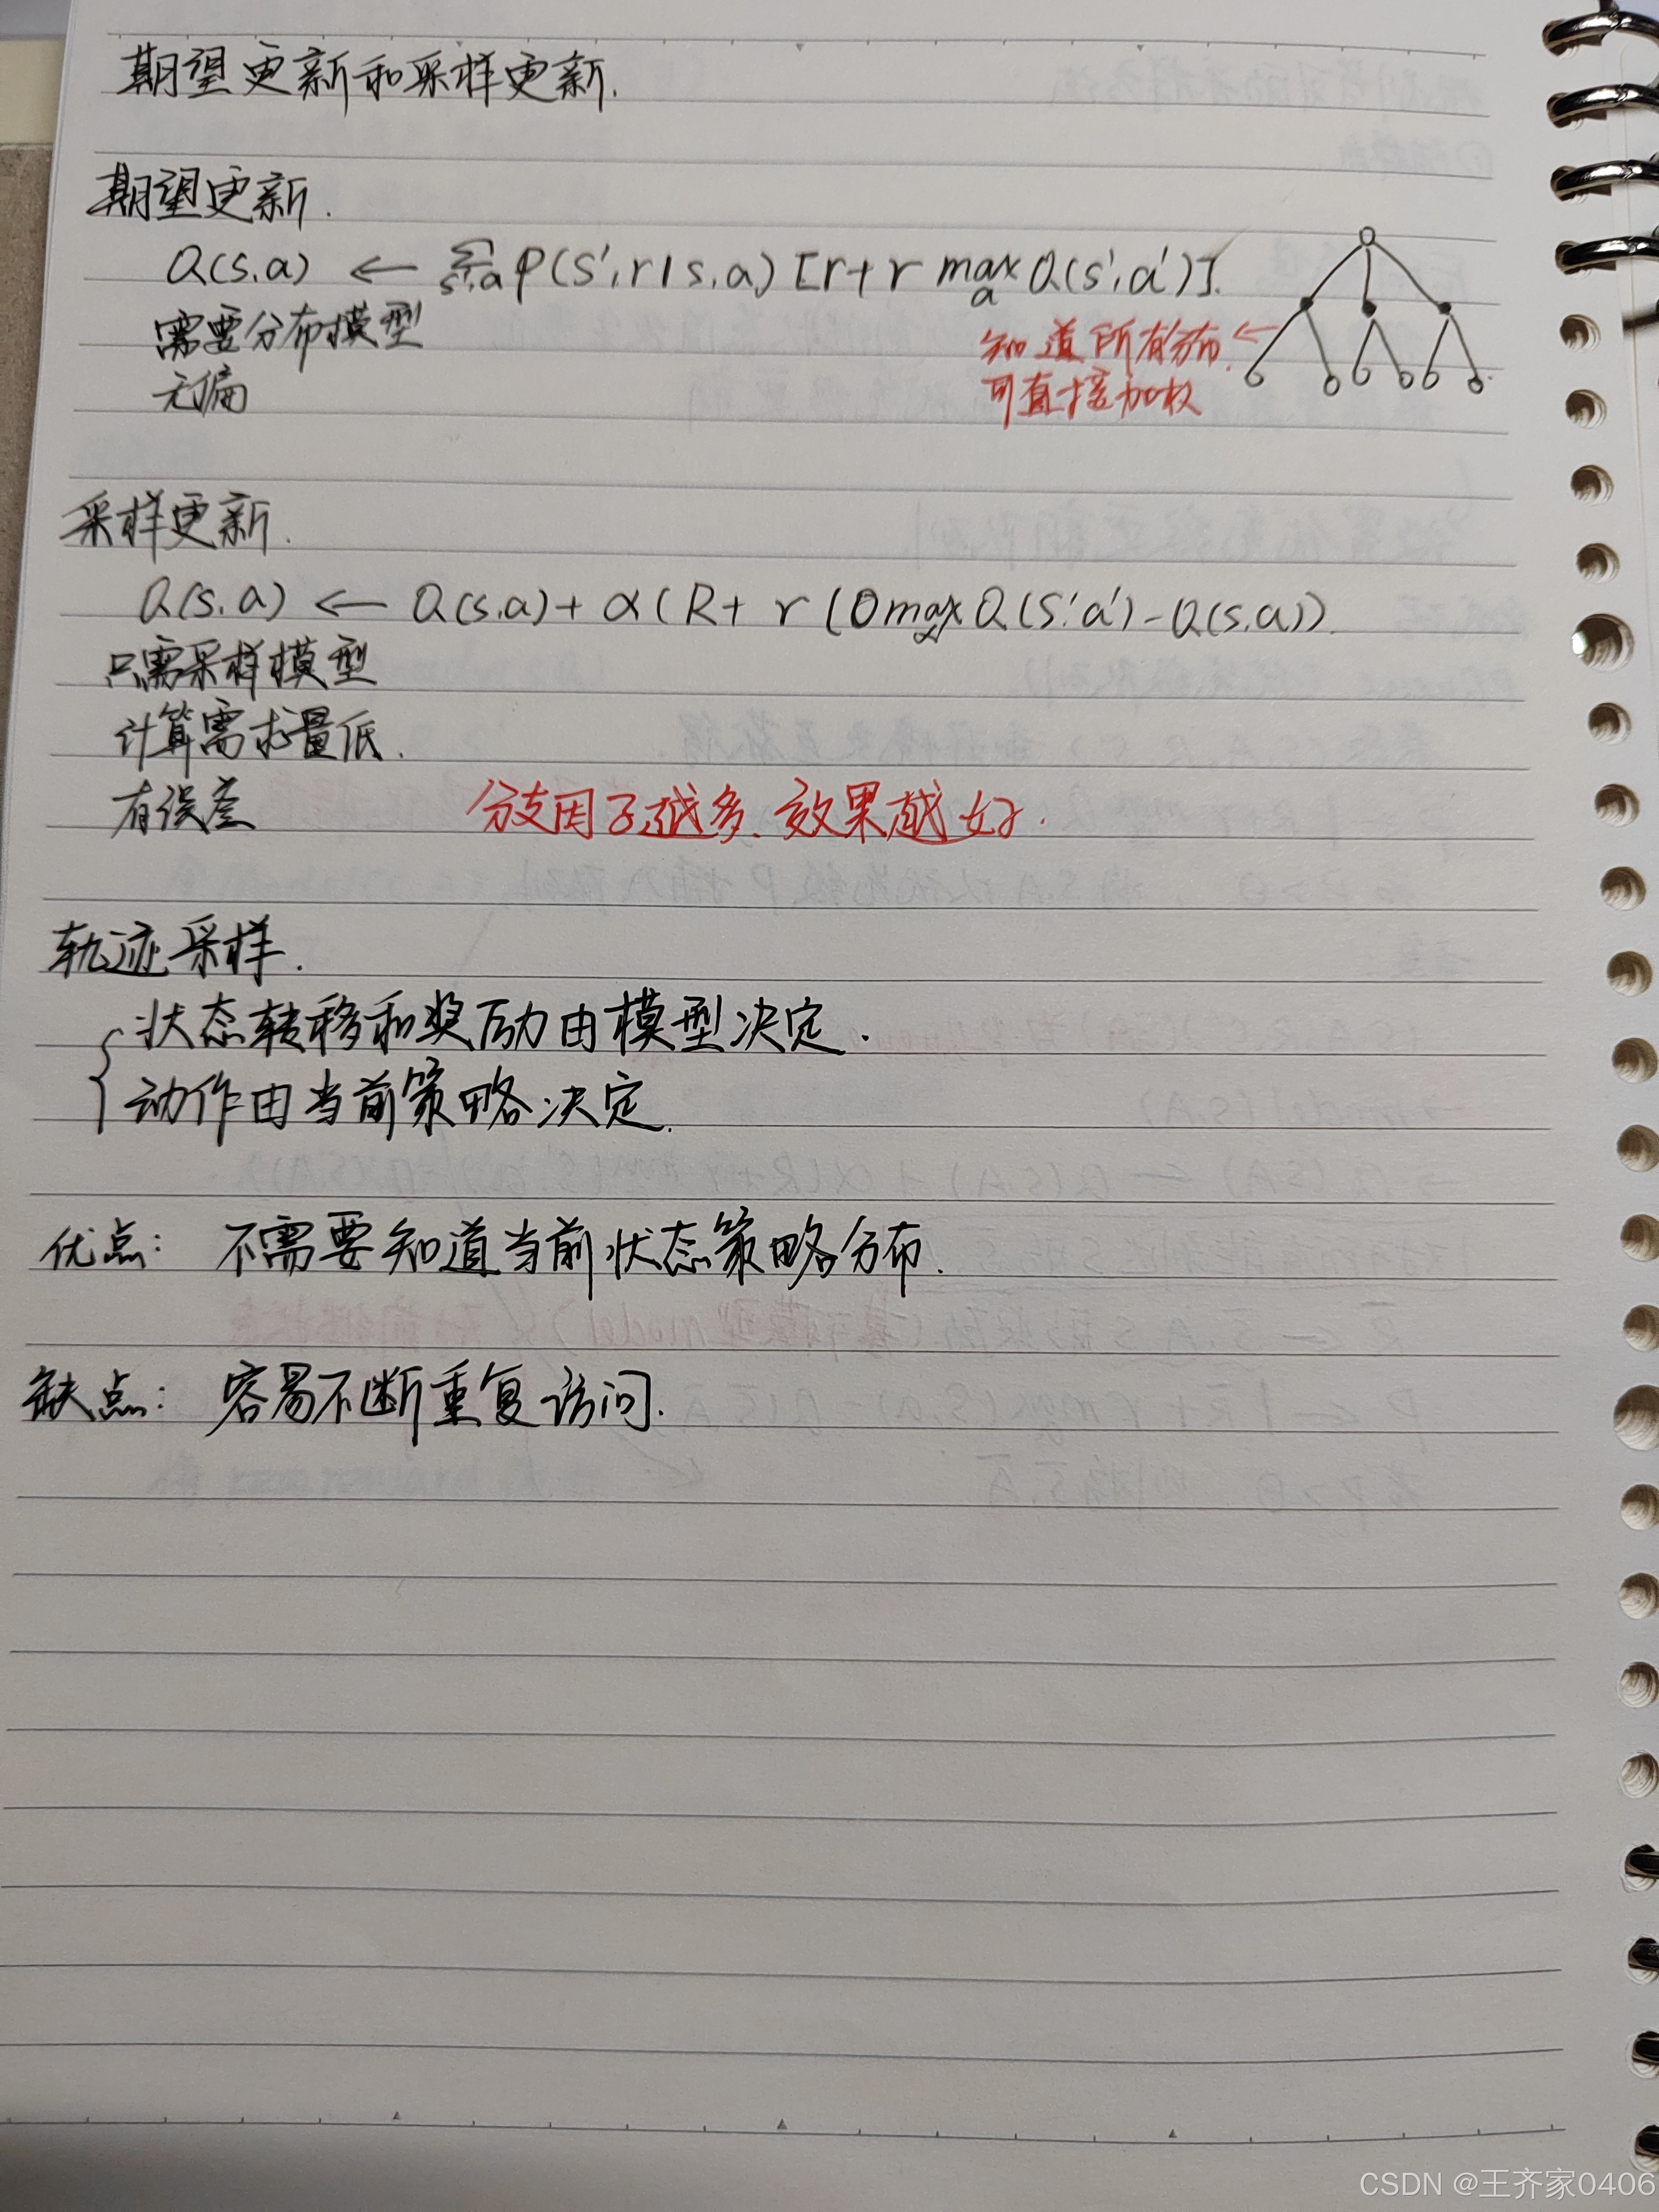 期望更新和采样更新.
期望更新.
Q(s,a) ← Σ s',a P(s',r|s,a) [r+r max a Q(s',a')].
需要分布模型
知道所有分布.
无偏
可直接加权
采样更新.
Q(s,a) ← Q(s,a)+ α(R+ r (0max a Q(s'a')-Q(s,a)).
只需采样模型
计算需求量低.
有误差 分支因子越多、效果越好.
轨迹采样.
状态转移和奖励由模型决定.
动作由当前策略决定.
优点: 不需要知道当前状态策略分布.
缺点: 容易不断重复访问.
CSDN @王齐家0406